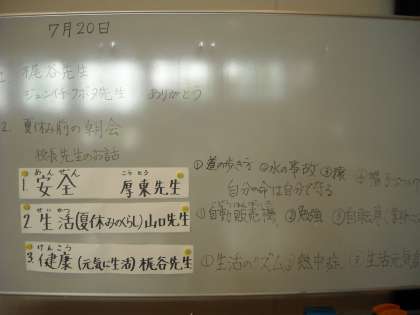 7月20日
1. 梶谷先生
ジュンイチ・クボタ先生 ありがとう
2. 夏休み前の朝会
校長先生のお話
あんぜん こうとう
1. 安全 厚東先生
①道の歩き方 ②水の事故 ③
自分の命は自分で守る
せいかつ
2. 生活(夏休みのくらし)山口先生
①自動販売機 ②勉強 ③自転車
けんこう
3. 健康(元気に生活)梶谷先生
①生活のリズム ②熱中症 ③生活元気